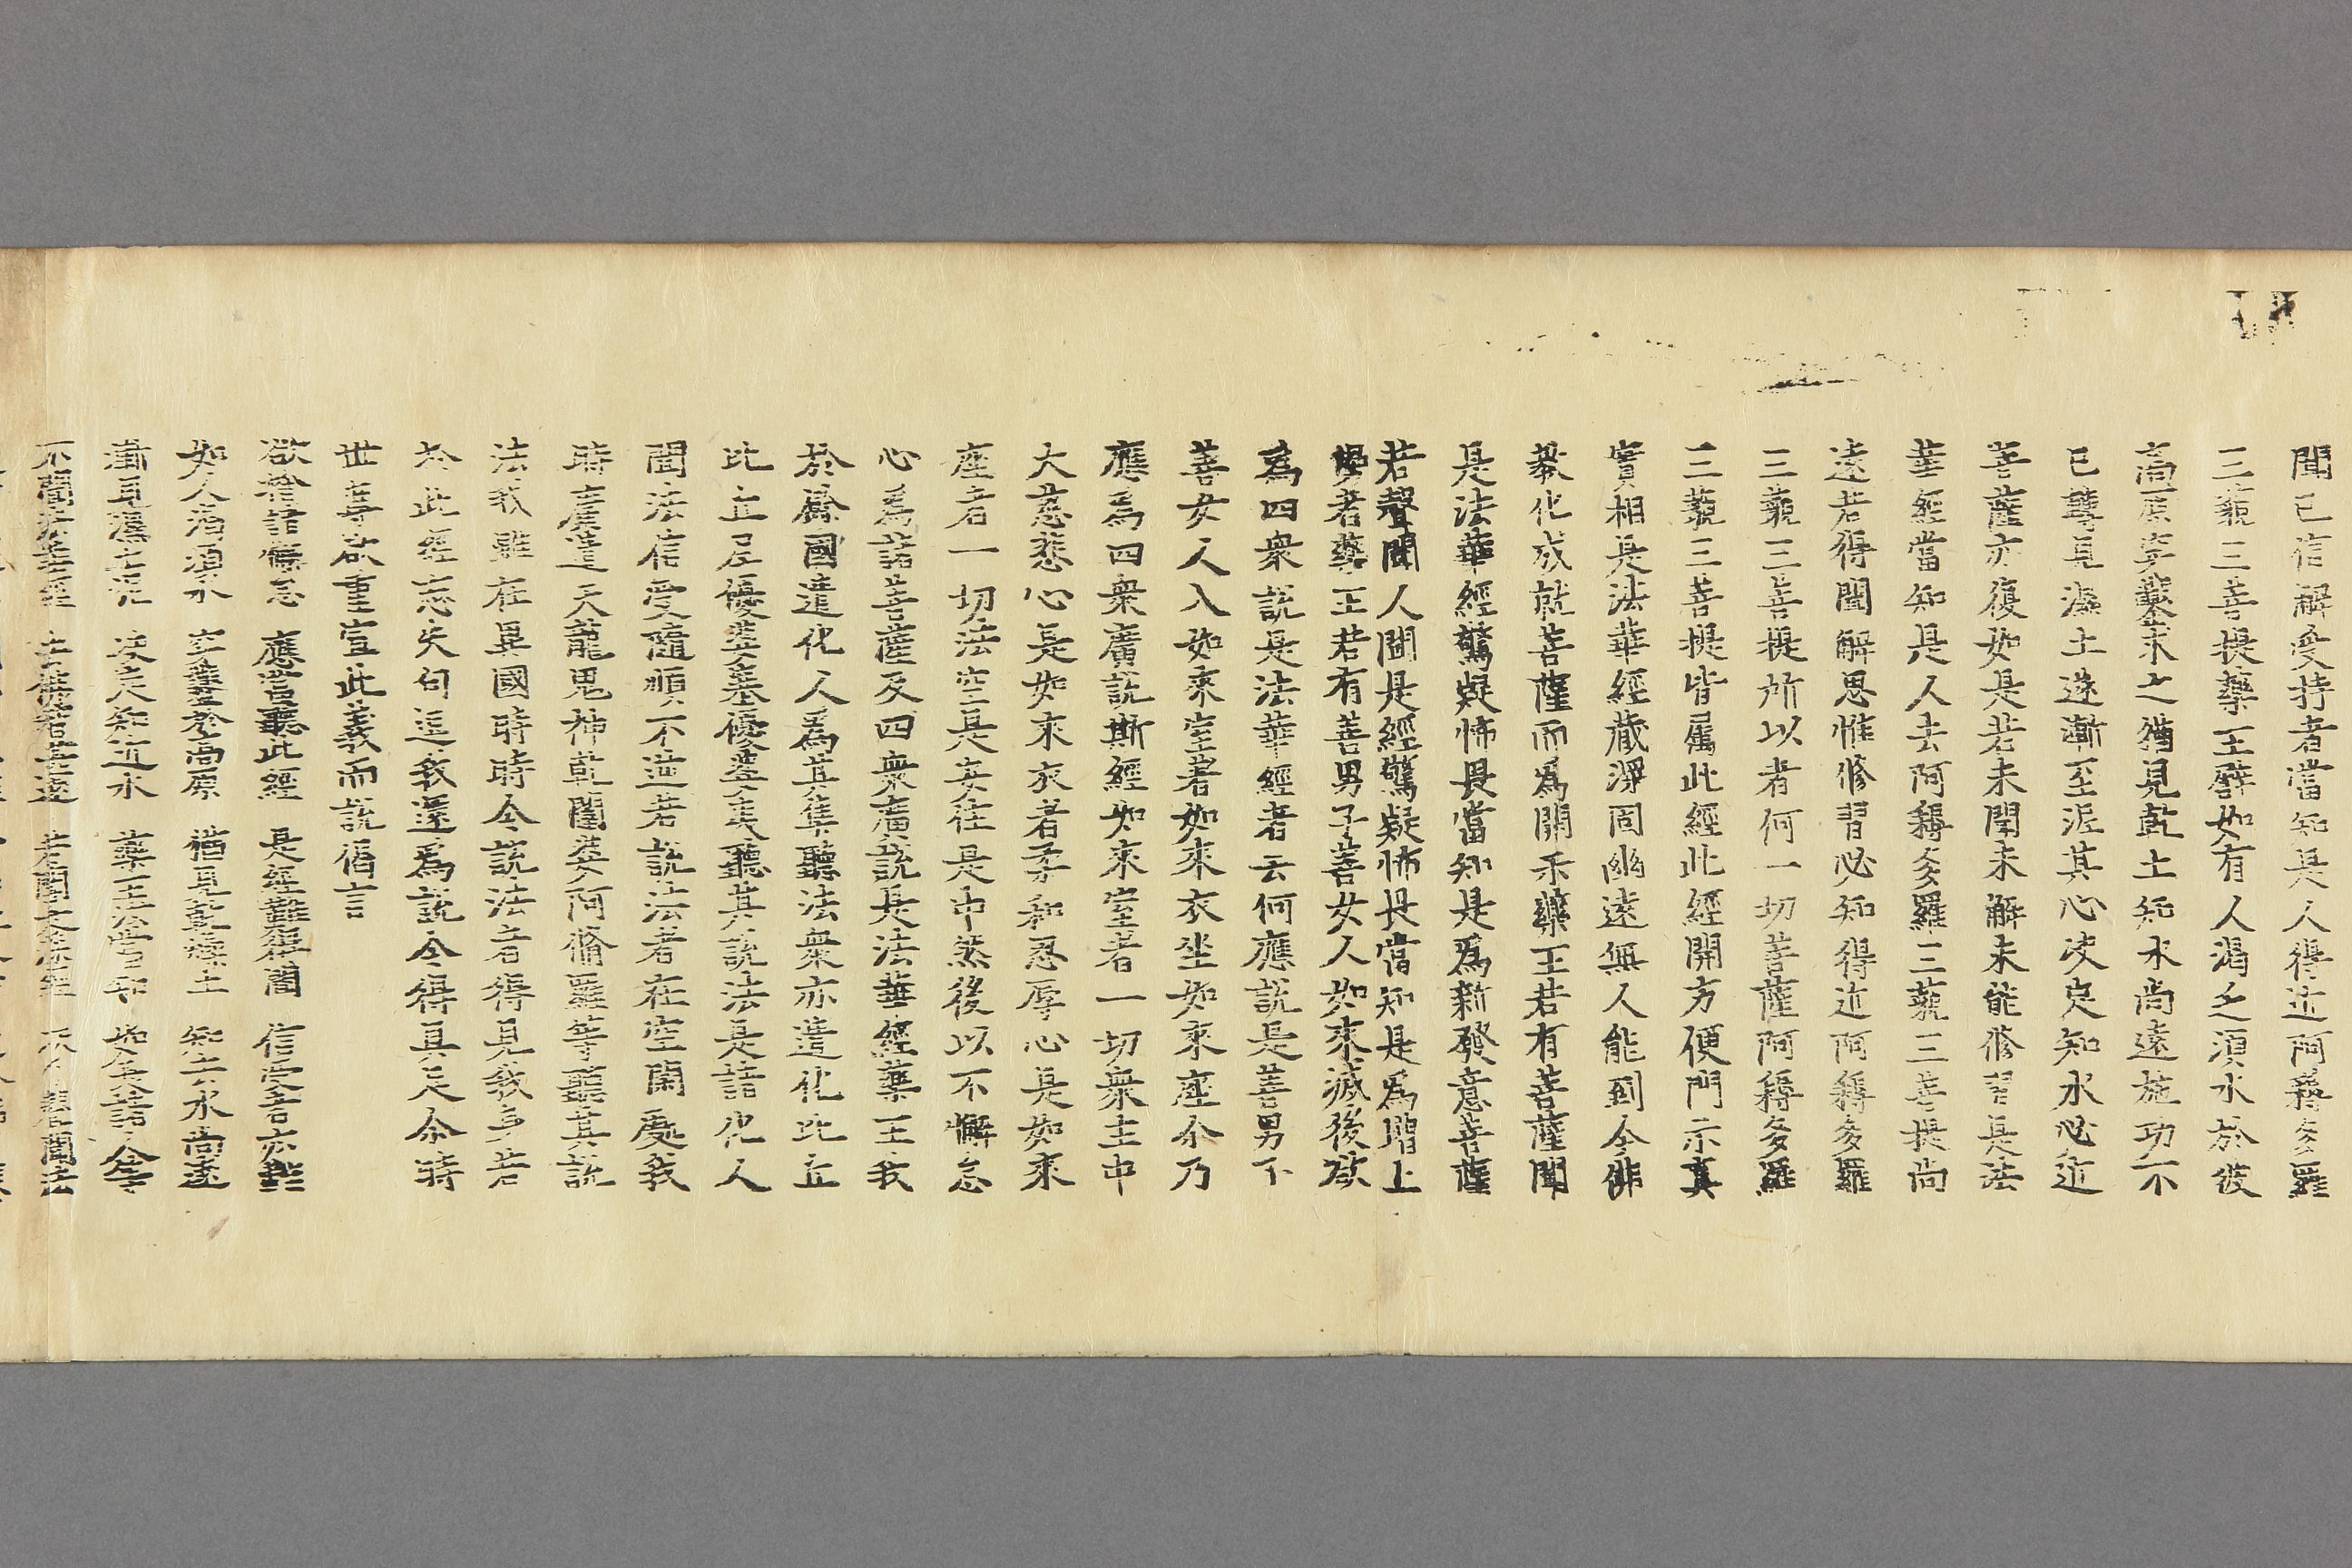 聞已信解受持者當知是人得近阿耨多羅
三藐三菩提藥王譬如有人渴乏須水於彼
高原穿鑿求之猶見乾土知水尚遠施功不
已轉見濕土遂漸至泥其心决定知水必近
菩薩亦復如是若未聞未解未能修習是法
華經當知是人去阿耨多羅三藐三菩提尚
遠若得聞解思惟修習必知得近阿耨多羅
三藐三菩提所以者何一切菩薩阿耨多羅
三藐三菩提皆屬此經此經開方便門示真
實相是法華經藏深固幽遠無人能到今佛
教化成就菩薩而爲開示藥王若有菩薩聞
是法華經驚疑怖畏當知是爲新發意菩薩
若聲聞人聞是經驚疑怖畏當知是爲增上
慢者藥王若有善男子善女人如來滅後欲
為四衆說是法華經者云何應說是善男子
善女人入如來室著如來衣坐如來座尒乃
應爲四衆廣說斯經如來室者一切衆生中
大慈悲心是如來衣者柔和忍辱心是如來
座者一切法空是安住是中然後以不懈怠
心爲諸菩薩及四衆廣說是法華經藥王我
於餘國遣化人爲其集聽法衆亦遣化比丘
比丘尼優婆塞優婆夷聽其說法是諸化人
聞法信受隨順不逆若說法者在空閑處我
時廣遣天龍鬼神乾闥婆阿脩羅等聽其說
法我雖在異國時時令說法者得見我身若
於此經忘失句逗我還爲說令得具足尒時
世尊欲重宣此義而說偈言
欲捨諸懈怠　應當聽此經　是經難得聞　信受者亦難
如人渴須水　穿鑿於高原　猶見乾燥土　知去水尚遠
漸見濕土泥　决定知近水　藥王汝當知　如是諸人等
不聞法華經　去佛智甚遠　若聞　經　聞法